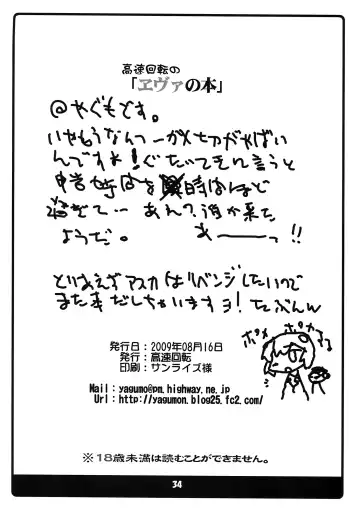 高速回転の
「ヱヴァの本」
@やぐもです。
いやもうなんつーか〆切がやばい
んですよ!ぐたいてきに言うと
申告時間を 時はほど
過ぎて… あれ?誰か来た
ようだ。 あーーーっ!!
とりあえずアスカはリベンジしたいので
また本だしちゃいますョ!たぶんね
ポメ ポカ
発行日:2009年08月16日
発行:高速回転
印刷:サンライズ様
Mail:yagumo@pm.highway.ne.jp
Url:http://yagumon.blog25.fc2.com/
※18歳未満は読むことができません。
34